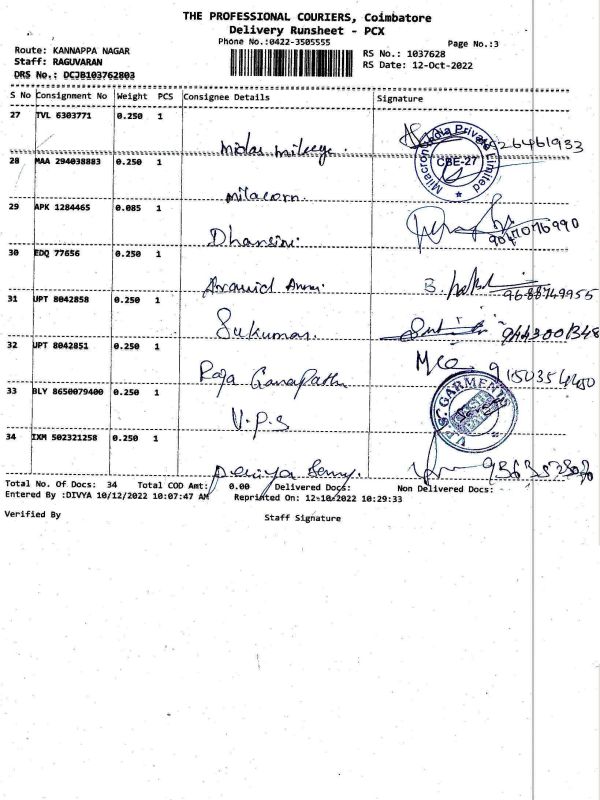 THE PROFESSIONAL COURIERS, Coimbatore
Delivery Runsheet - PCX
Phone No.:0422-3505555
Page No.:3
Route: KANNAPPA NAGAR
RS No.: 1037628
Staff: RAGUVARAN
RS Date: 12-Oct-2022
DRS No.: DCJB103762803
S No Consignment No Weight PCS Consignee Details Signature
27 TVL 6303771 0.250 1
28 MAA 294038883 0.250 1
Milacron India Private Limited
CBE-27
Milacorn.
29 APK 1284465 0.085 1
Dhansini
30 EDQ 77656 0.250 1
Aravind
9688749955
31 UPT 8042858 0.250 1
Sukumar.
9443001348
32 UPT 8042851 0.250 1
Raja Ganapathi
33 BLY 8650079400 0.250 1
V.P.S
V.P.S. GARMENTS
34 IXM 502321258 0.250 1
Total No. Of Docs: 34 Total COD Amt: 0.00 Delivered Docs: Non Delivered Docs:
Entered By :DIVYA 10/12/2022 10:07:47 AM Reprinted On: 12-10-2022 10:29:33
Verified By
Staff Signature